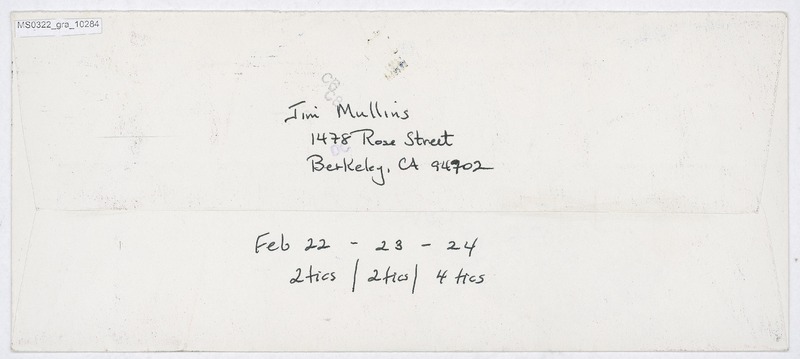 MS0322_gra_10284
Jim Mullins
1478 Rose Street
Berkeley, CA 94702
Feb 22 - 23 - 24
2 tics / 2 tics / 4 tics